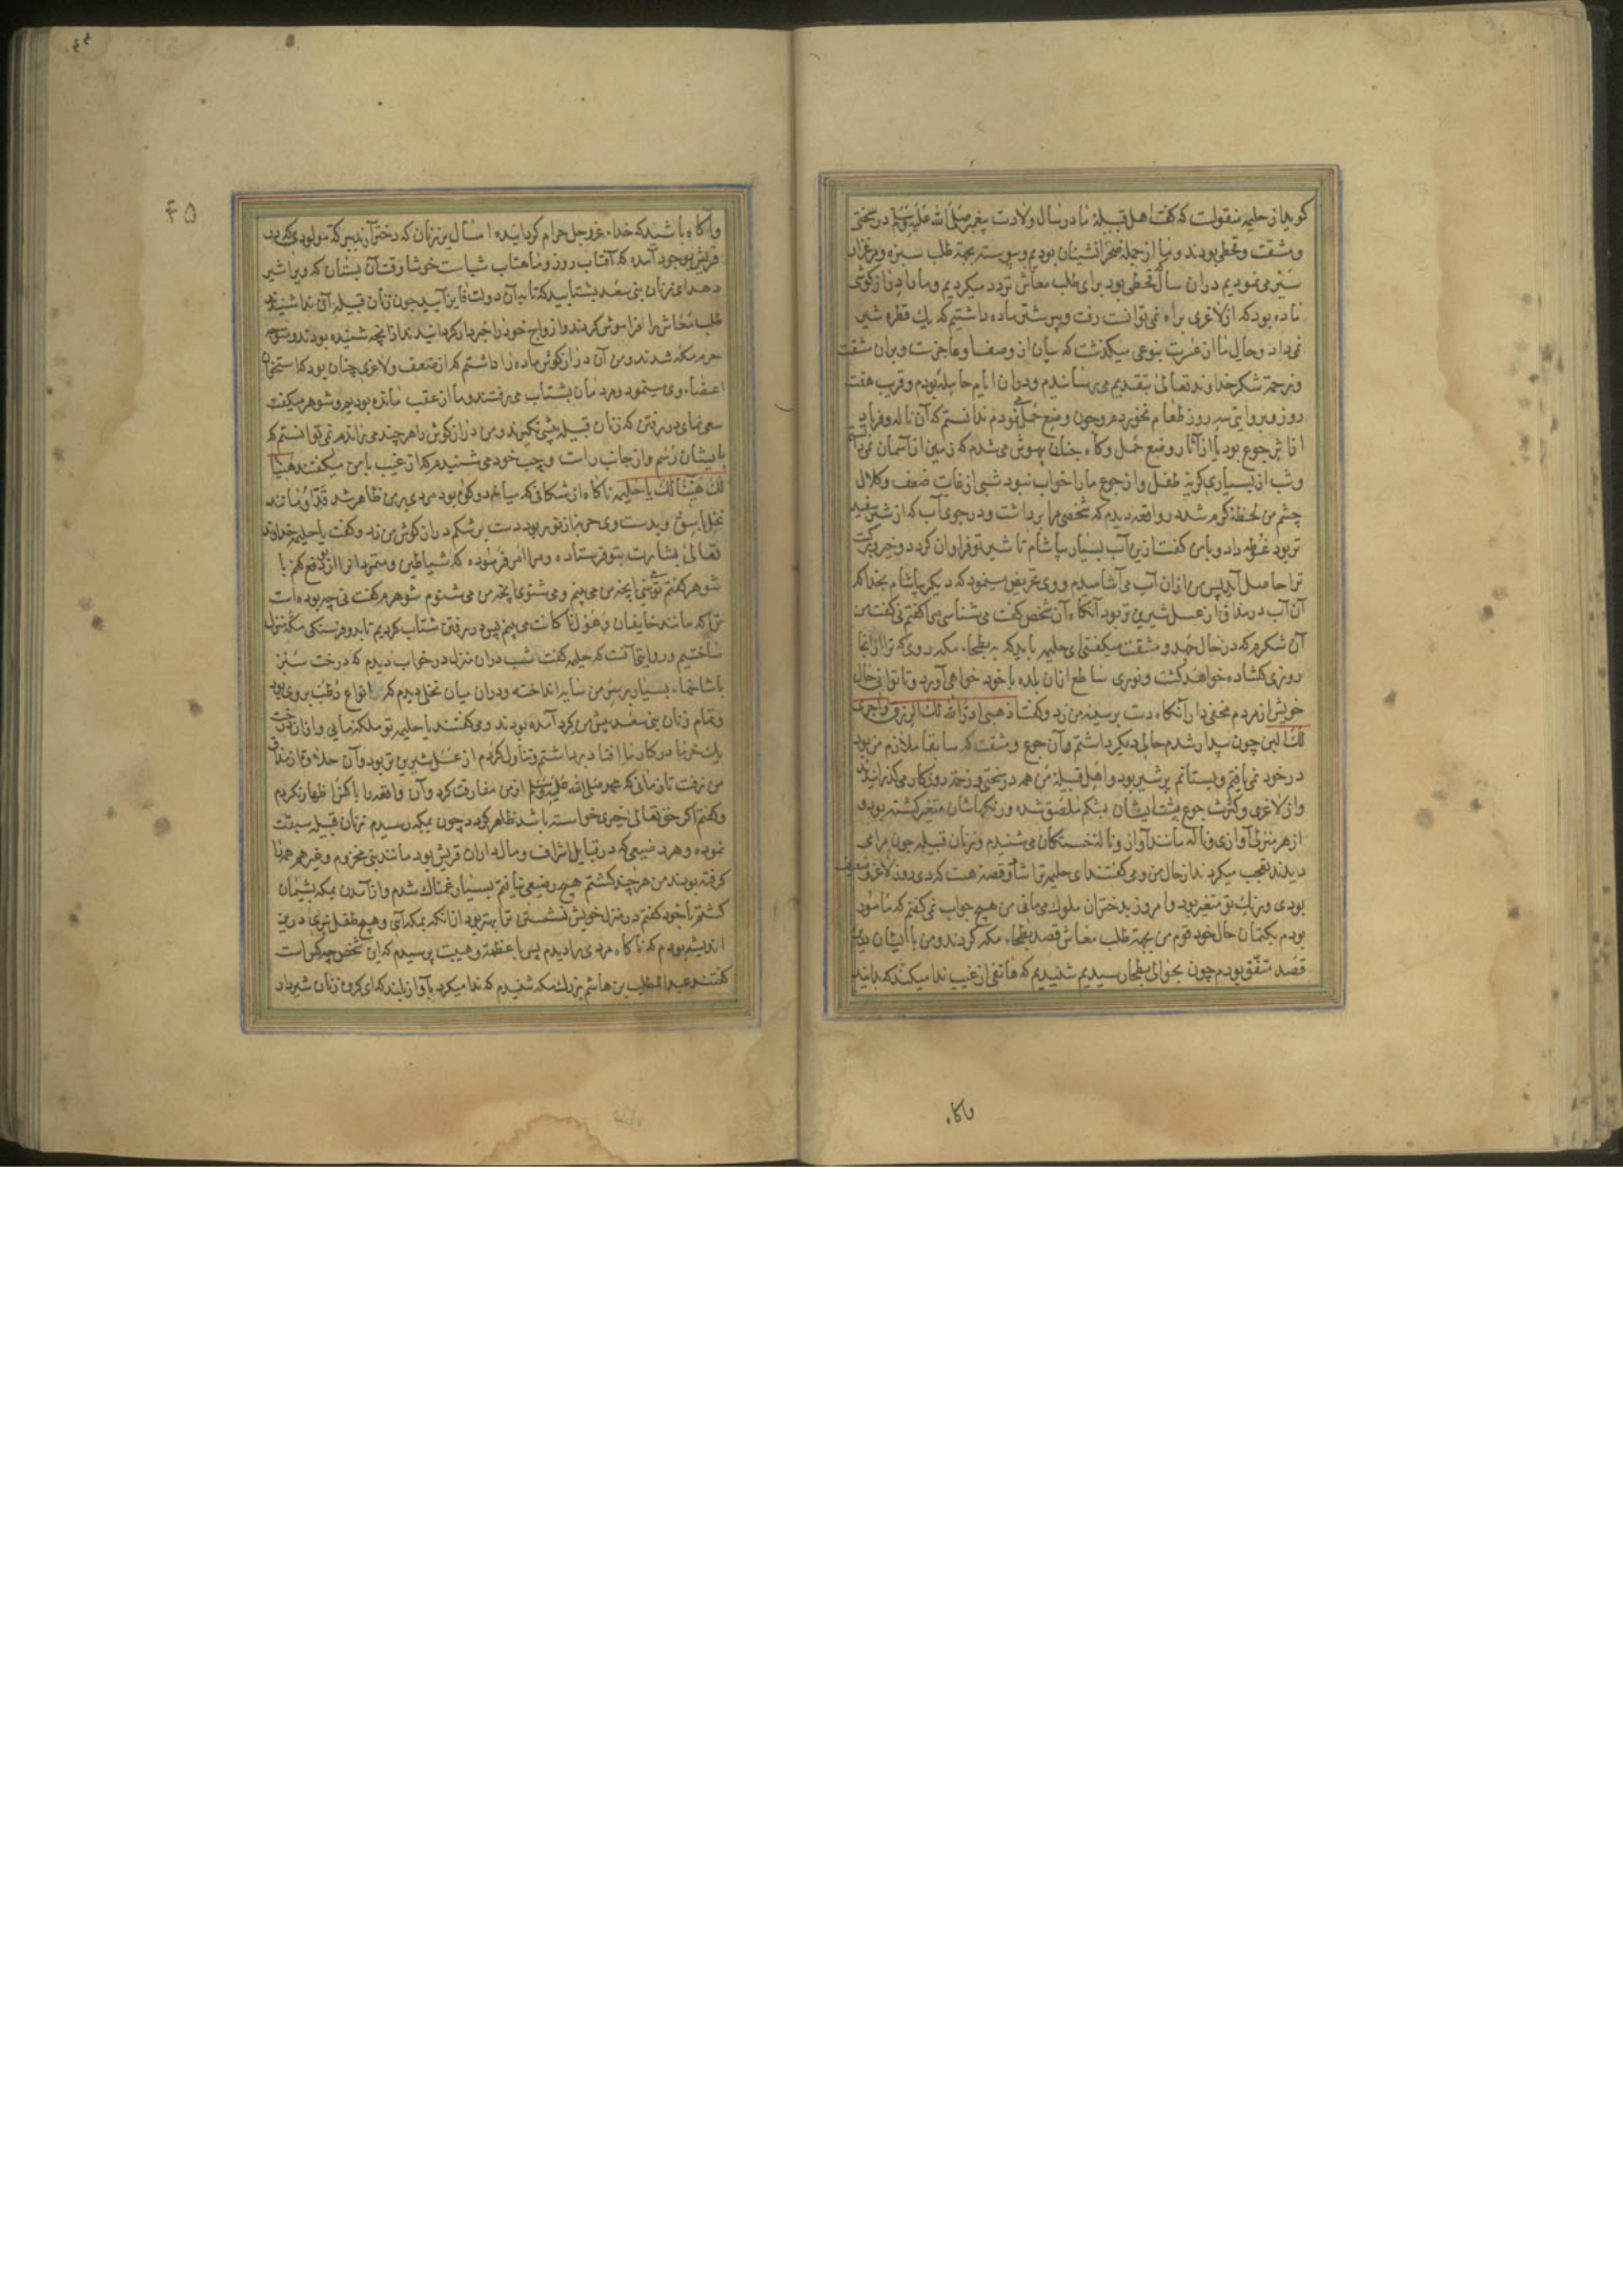 گویند از حلیمه منقولست که گفت اهل قبیلهٔ ما در سال ولادت پیغمبر صلی الله علیه وسلم در سختی
و مشقت و قحطی بودند و ما از جمله صحرانشینان بودیم و پیوسته بجهة طلب سبزه و مرغزار
سیر می نمودیم در ان سال قحطی بود برای طلب معاش تردد میکردیم و ما را دراز گوشی
ماده بود که از لاغری براه نمی توانست رفت و پیر شتر ماده داشتیم که یك قطره شیر
نمی داد و حال ما از عسرت بنوعی میکذشت که بیان از وصف او عاجزست و بران مشقت
و زحمة شکر خداوند تعالی بتقدیم می رساندم و دران ایام حامله بودم و قریب هفت
روز و بروایتی سه روز طعام نخوردم و چون وضع حمل نمودم ندانستم که آن ناله و فریاد
از اثر جوع بود یا از آثار وضع حمل و کاه چنان بیهوش می شدم که زمین از آسمان نمی دانستم
و شب از بسیاری کریهٔ طفل و از جوع ما را خواب نبود شبی از غایت ضعف و کلال
چشم من لحظهٔ کرم شد در واقعه دیدم که شخصی مرا برداشت و در جوی آب که از شیر سفید
تر بود غوطه داد و با من گفت ازین آب بسیار بیاشام تا شیر تو فراوان کردد و خیر و برکت
ترا حاصل آید پس من ازان آب می آشامیدم و وی تحریض مینمود که دیکر بیاشام بخدا که
آن آب در مذاق از عسل شیرین تر بود آنکاه آن شخص گفت می شناسی مرا گفتم نی گفت من
آن شکرم که در حال جهد و مشقت میکفتی ای حلیمه باید که به بطحاء مکه روی که ترا از انجا
روزی کشاده خواهد کشت و نوری ساطع ازان بلده با خود خواهی آورد و تا توانی حال
خویش از مردم مخفی دار آنکاه دست بر سینه من زد و گفت اذهبی ادرّ الله لك الرزق و اجری
لك اللبن چون بیدار شدم حالی دیکر داشتم و آن جوع و مشقت که سابقا ملازم من بود
در خود نمی یافتم و پستانم پر شیر بود و اهل قبیلهٔ من همه در سختی و زحمة روزکار می کذرانیدند
و از لاغری و کثرت جوع پشت ایشان بشکم ملصق شده و رنکهاشان متغیر کشته بود و
از هر منزلی آوازی و ناله مانند آواز و ناله خستکان می شنیدم و زنان قبیله چون مرا می
دیدند تعجب میکردند از حال من و می کفتند ای حلیمه ترا شان و قصهٔ هست که دی روز لاغر و ضعیف
بودی و رنك تو متغیر بود و امروز بدختران ملوك می مانی من هیچ جواب نمی گفتم که مامور
بودم بکتمان حال خود قوم من بجهة طلب معاش قصد بطحاء مکه کردند و من با ایشان درین
قصد متفق بودم چون بحوالی بطحا رسیدیم شنیدیم که هاتفی از غیب ندا میکند که بدانید
واکاه
۴۵
وآکاه باشید که خدای عزوجل حرام کردانیده امسال بر زنان که دختر آرند ببرکة مولودی که در
قریش بوجود آمده که آفتاب روز و ماهتاب شبانست خوشا وقت آن پستان که ویرا شیر
دهد ای زنان بنی سعد بشتابید که تا به آن دولت فایز آیید چون زنان قبیله آن ندا شنیدند
طلب معاش را فراموش کردند و ازواج خود را خبردار کردانیدند از انچه شنیده بودند و متوجه
حرم مکه شدند و من آن دراز گوش ماده را داشتم که از ضعف و لاغری چنان بود که استخوان
اعضاء وی مینمود و مردمان بشتاب می رفتند و ما از عقب مانده بودیم و شوهرم میگفت
سعی نمای در رفتن که زنان قبیله پیشی نکیرند و من دراز گوش را هر چند می راندم نمی توانستم که
بایشان رسم و از جانب راست و چپ خود می شنیدم که از غیب با من میکفتند هنیئا
لك هنیئا لك یا حلیمه ناکاه از شکافی که میانهٔ دو کوه بود مردی بر من ظاهر شد قد او مانند
نخل باسق و بدست وی حربهٔ از نور بود دست بر شکم دراز گوش من زد و گفت یا حلیمه خداوند
تعالی بشارت بتو فرستاده و مرا امر فرموده که شیاطین و متمردان را از تو دفع کنم با
شوهر گفتم تو می بینی آنچه من می بینم و می شنوی آنچه من می شنوم شوهرم گفت نی چه بوده است
ترا که مانند خایفان و هولناکانت می بینم پس در رفتن شتاب کردیم تا بدو فرسنکی مکه منزل
ساختیم و روایتی آنست که حلیمه گفت شب دران منزل در خواب دیدم که درخت سبز
با شاخهاء بسیار بر سر من سایه انداخته و دران میان نخلی دیدم که انواع رطب بر وی بود
و تمام زنان بنی سعد پیش من کرد آمده بودند و می گفتند یا حلیمه تو ملکهٔ مایی و ازان درخت
یك خرما در کنار ما افتاد برداشتم و تناول کردم از عسل شیرین تر بود و آن حلاوة از مذاق
من نرفت تا زمانی که محمد صلی الله علیه وسلم از من مفارقت کرد و آن واقعه را با کس اظهار نکردم
و گفتم اکر حق تعالی خیری خواسته باشد ظاهر کردد چون بمکه رسیدم زنان قبیله سبقت
نموده و هر رضیعی که در قبایل اشراف و مال داران قریش بود مانند بنی مخزوم و غیرهم همه را
کرفته بودند من هر چند کشتم هیچ رضیعی نیافتم بسیار غمناك شدم و از آمدن بمکه پشیمان
کشتم با خود گفتم در منزل خویش نشستن ترا بهتر بود از انکه بمکه آیی و هیچ طفل نبری درین
اندیشه بودم که ناکاه مردی را دیدم پس با عظمة و هیبت پرسیدم که این شخص چه کس است
گفتند عبدالمطلب بن هاشم بزرك مکه شنیدم که ندا میکرد بآواز بلند که ای کروه زنان شیرداد